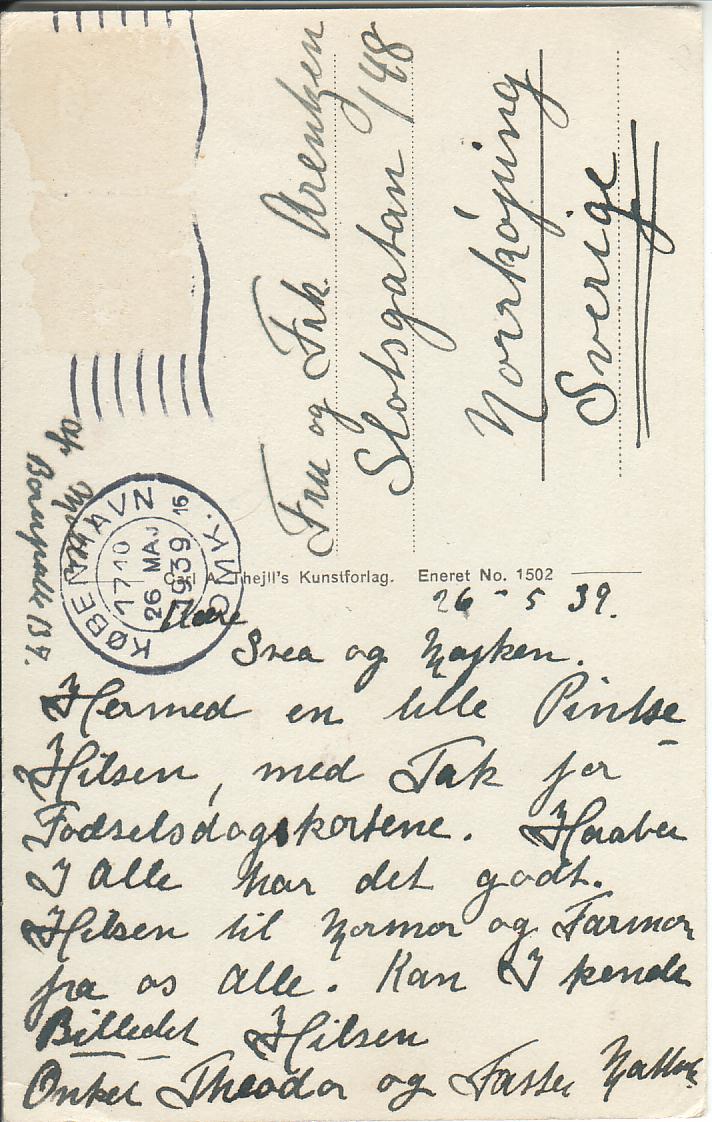 Fru og Frk. Arentzen
Slotsgatan 148
Norrköping
Sverige
KØBENHAVN
OMK.
16
1710
26 MAJ
1939
Carl A. Thejll's Kunstforlag. Eneret No. 1502
26 - 5 39.
Kære
Svea og Majken.
Hermed en lille Pintse
Hilsen, med Tak for
Fødselsdagskortene. Haaber
I Alle har det godt.
Hilsen til Mormor og Farmor
fra os Alle. Kan I kende
Billedet Hilsen
Onkel Theodor og Faster